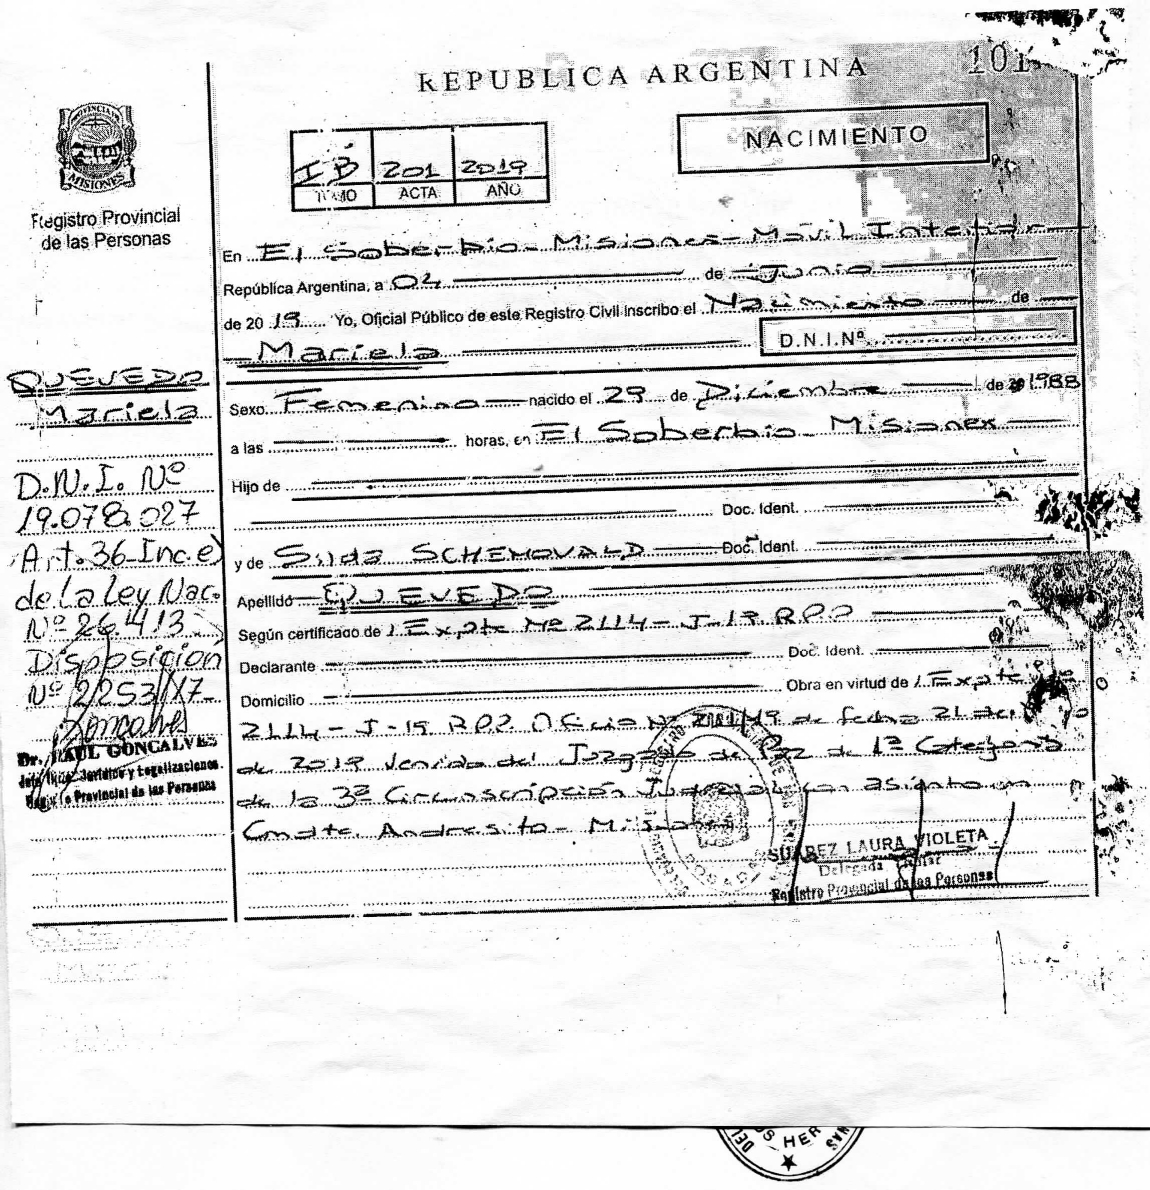 REPUBLICA ARGENTINA
101
PROVINCIA DE
MISIONES
Registro Provincial
de las Personas
NACIMIENTO
IB 201 2019
TOMO ACTA AÑO
En El Soberbio - Misiones - Movil
República Argentina, a 04 de Junio
de 2019 Yo, Oficial Público de este Registro Civil Inscribo el Nacimiento de
Mariela
D.N.I.Nº
QUEVEDO
Mariela
D.N.I. Nº
19.078.027
Art. 36-Inc.e)
de la Ley Nac.
Nº 26.413.
Disposicion
Nº 2253/17-
Dr. RAUL GONCALVES
Registro Provincial de las Personas
Sexo Femenino nacido el 29 de Diciembre de 1988
a las horas, en El Soberbio - Misiones
Hijo de
Doc. Ident.
y de Silda SCHEMOVALD Doc. Ident.
Apellido QUEVEDO
Según certificado de Expte Nº 2114-J-19 R.P.P
Declarante Doc. Ident.
Domicilio Obra en virtud de Expte
2114-J-19 R.P.P. Oficio Nº /19 de fecha 21 de
de 2019 Venido del Juzgado de Paz de 1ª Categoria
de la 3ª Circunscripción Judicial con asiento en
Cmdte. Andresito - Misiones
SUAREZ LAURA VIOLETA
Delegada
Registro Provincial de las Personas